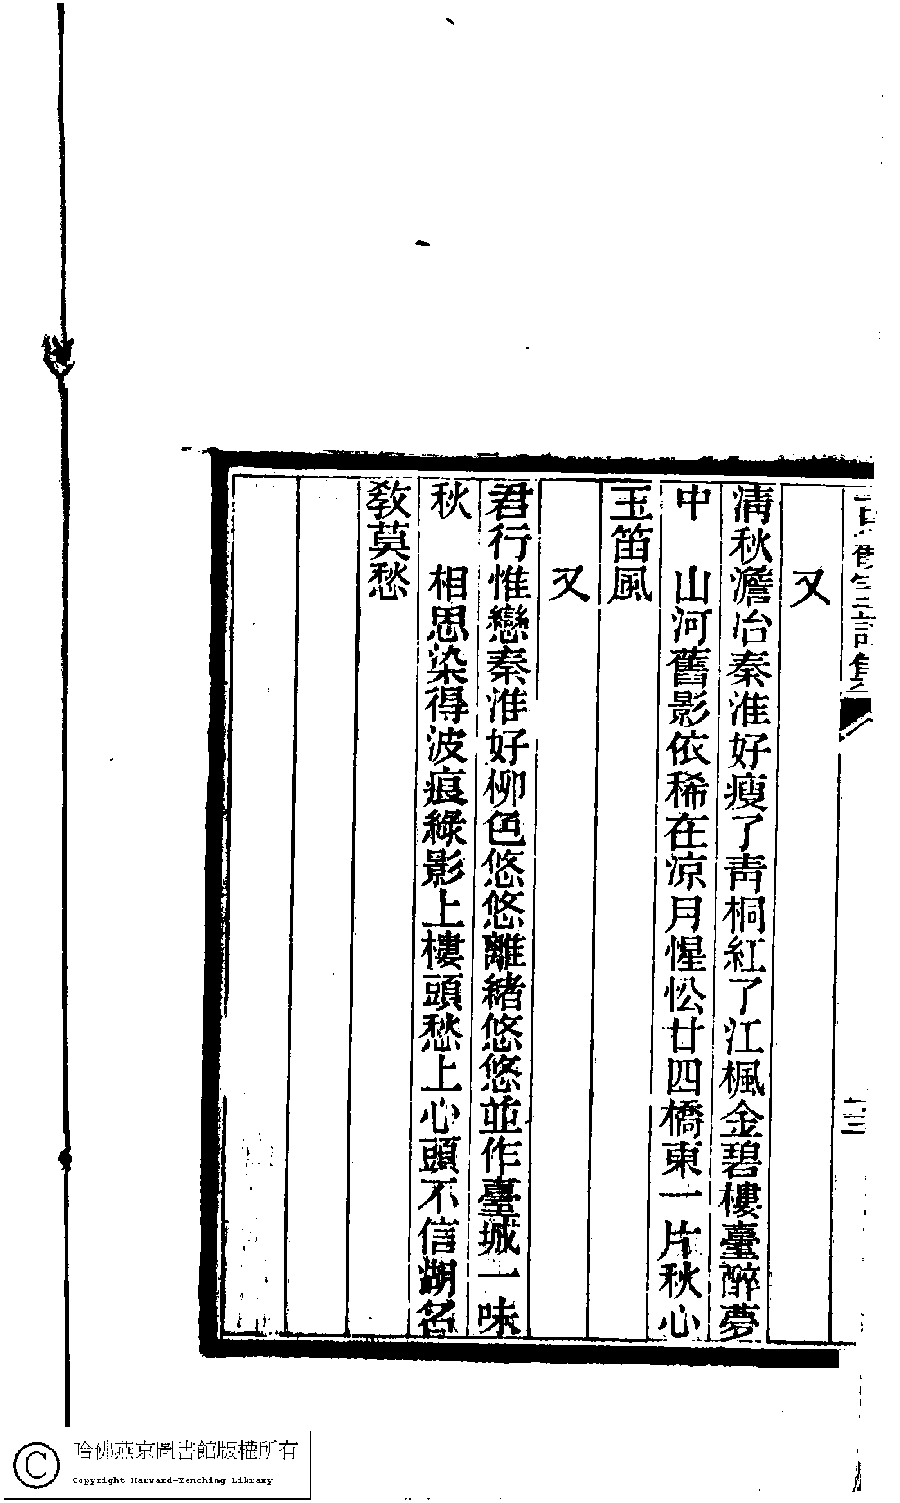 又
清秋澹冶秦淮好瘦了青桐紅了江楓金碧樓臺醉夢
中　山河舊影依稀在涼月惺忪廿四橋東一片秋心
玉笛風
又
君行惟戀秦淮好柳色悠悠離緒悠悠並作臺城一味
秋　相思染得波痕綠影上樓頭愁上心頭不信湖名
教莫愁
哈佛燕京圖書館版權所有
Copyright Harvard-Yenching Library